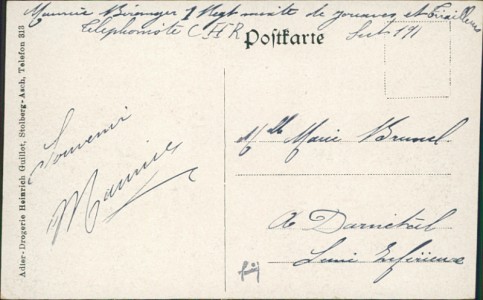 Maurice Béranger 1 Regt mixte de zouaves et Tirailleurs
Telephoniste C H R
Postkarte
Sect 191
Adler-Drogerie Heinrich Guillot, Stolberg-Asch, Telefon 313
Souvenir
Maurice
Mlle Marie Brunel
A Darnétal
Seine Inférieure